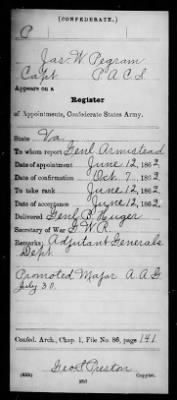 (CONFEDERATE.)
P
Jas. W. Pegram
Capt P. A. C. S.
Appears on a
Register
of Appointments, Confederate States Army.
State Va
To whom report Genl Armistead
Date of appointment June 12, 1862
Date of confirmation Oct. 7, 1862
To take rank June 12, 1862
Date of acceptance June 12, 1862
Delivered Genl B. Huger
Secretary of War G W R.
Remarks: Adjutant Generals
Dept
Promoted Major A. A. G
July 30.
Confed. Arch., Chap. 1, File No. 86, page 141
Geo S Preston
Copyist.